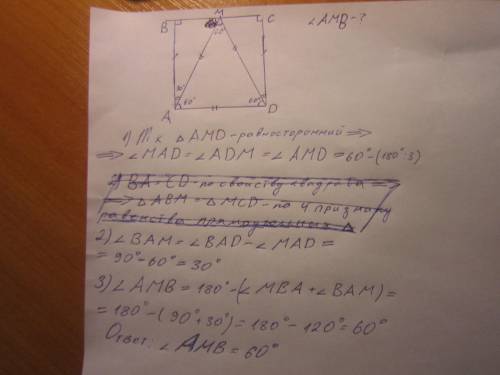 M
B C ∠AMB-?
60°
30°
60° 60°
A D
1) Т.к △AMD-равносторонний ⟹
⟹ ∠MAD=∠ADM=∠AMD=60°-(180°:3)
2) BA=CD-по свойству квадрата ⟹
⟹ △ABM=△MCD-по 4 признаку
равенства прямоугольных △
2) ∠BAM=∠BAD-∠MAD=
=90°-60°=30°
3) ∠AMB=180°-(∠MBA+∠BAM)=
=180°-(90°+30°)=180°-120°=60°
Ответ: ∠AMB=60°